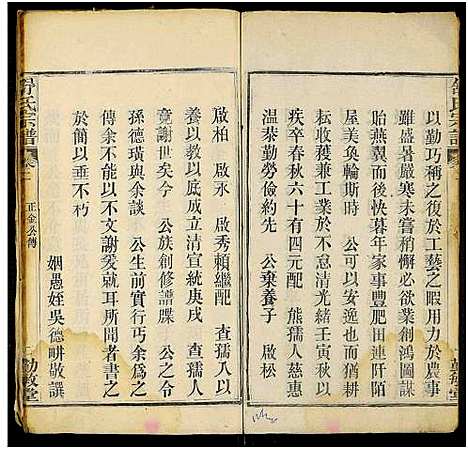 舒氏宗譜
以勤巧稱之復於工藝之暇用力於農事
雖盛暑嚴寒未嘗稍懈必欲業創鴻圖謀
貽燕翼而後快暮年家事豐肥田連阡陌
屋美奐輪斯時　公可以安逸也而猶不
耘收穫兼工業於不怠清光緒壬寅秋以
疾卒春秋六十有四元配　熊孺人慈惠
溫恭勤勞儉約先　公棄養子　啟松
啟柏　啟永　啟秀賴繼配　查孺人以
養以教以底成立清宣統庚戌　查孺人
竟謝世矣今　公族創修譜牒　公之令
孫德璜與余談　公生前實行丐余為之
傳余不能以不文謝爰就耳所聞者書之
於簡以垂不朽
姻愚姪吳德畊敬譔
舒氏宗譜
正金公傳
敦堂